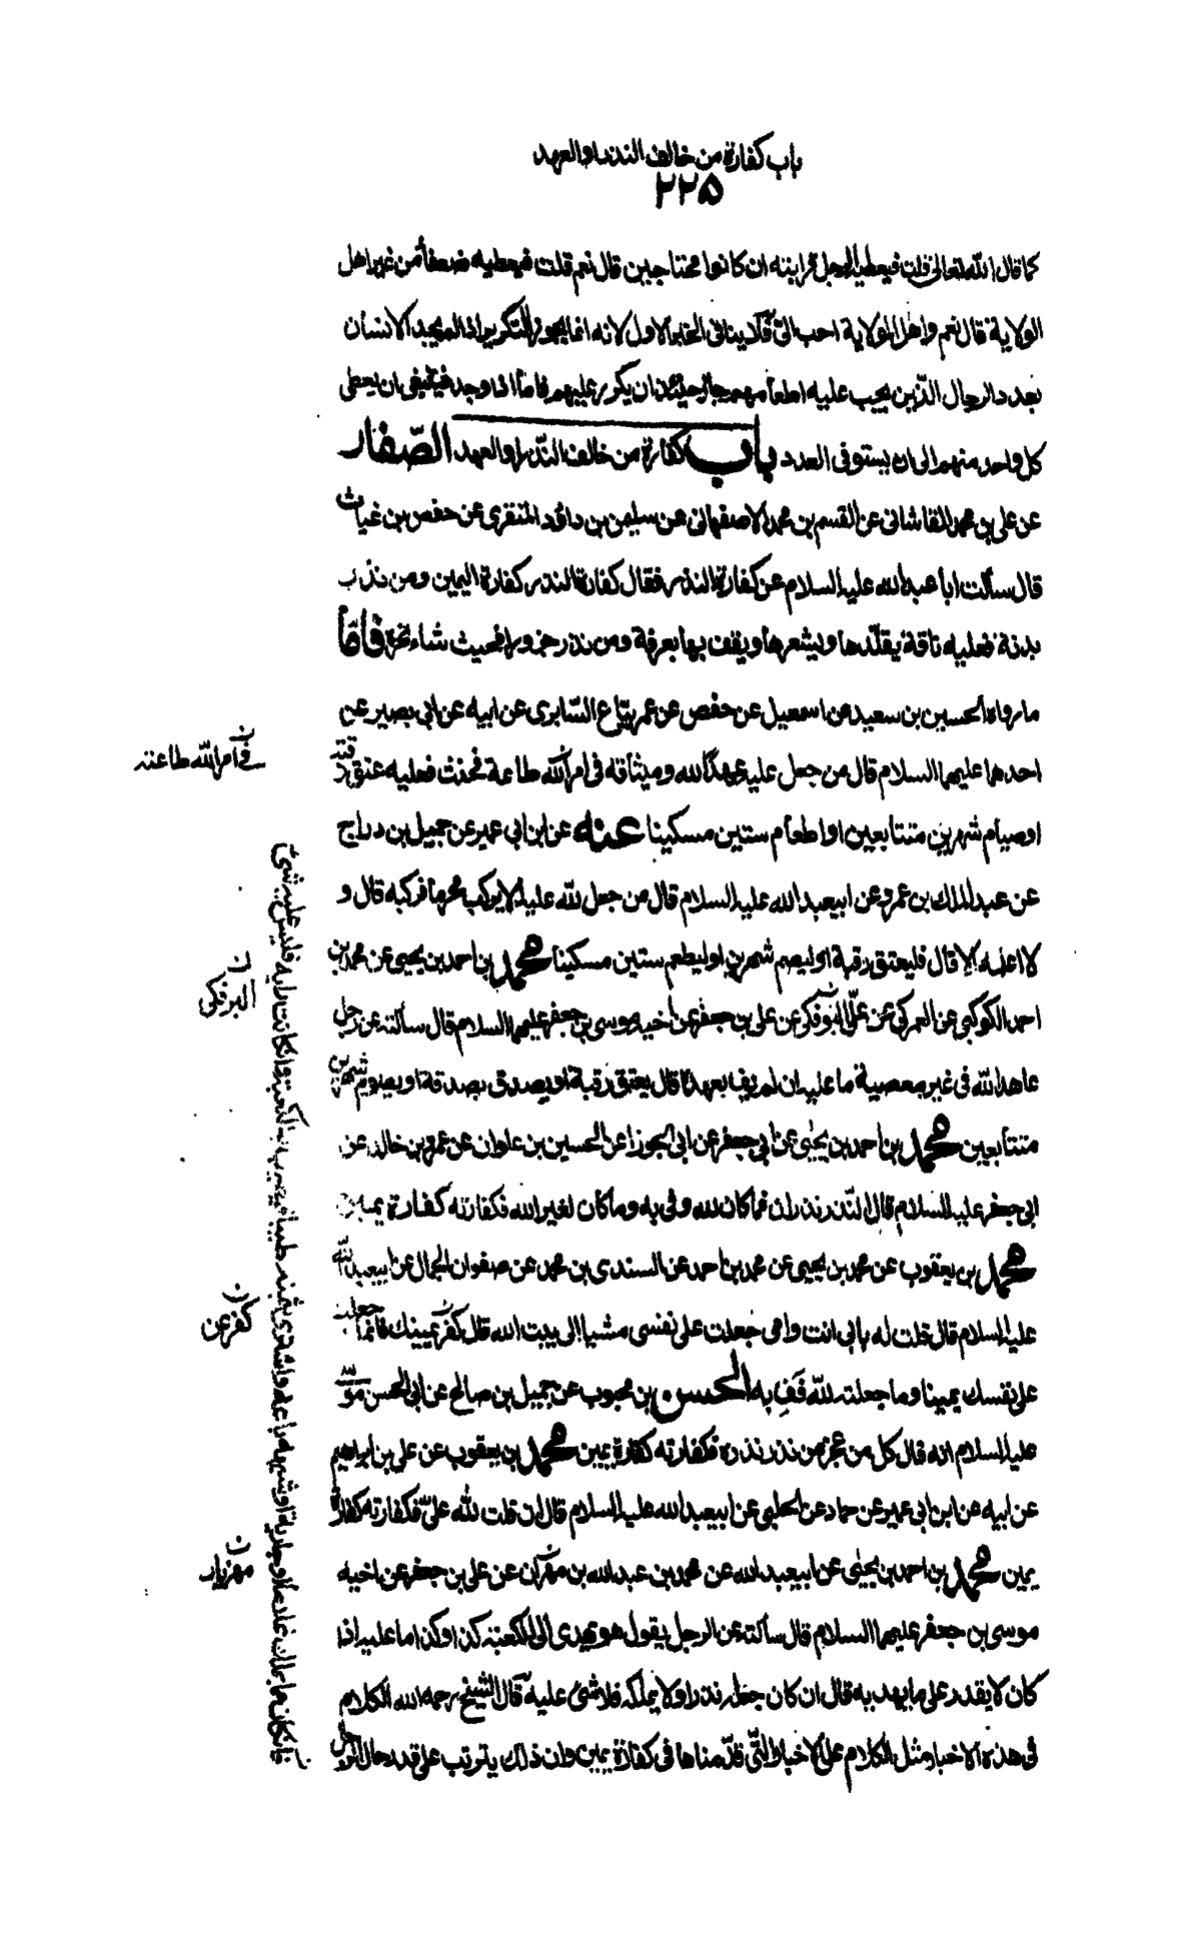 باب كفارة من خالف النذر او العهد
٢٢٥
كما قال الله تعالى قلت فيعطيه الرجل قرابته ان كانوا محتاجين قال نعم قلت فيعطيه ضعفاء من غير اهل
الولاية قال نعم واهل الولاية احب الىّ فلا ينافى الخبر الاول لانه انما يجوز التكرير اذا لم يجد الانسان
بعدد الرجال الذين يجب عليه اطعامهم جاز حينئذ ان يكرر عليهم فاما اذا وجد فينبغى ان يعطى
كل واحد منهم الى ان يستوفى العدد باب كفارة من خالف النذر او العهد الصّفار
عن على بن محمد القاشانى عن القسم بن محمد الاصفهانى عن سليمن بن داود المنقرى عن حفص بن غياث
قال سألت ابا عبد الله عليه السلام عن كفارة النذر فقال كفارة النذر كفارة اليمين ومن نذر
بدنة فعليه ناقة يقلّدها ويشعرها ويقف بها بعرفة ومن نذر جزورا فحيث شاء نحره فامّا
ما رواه الحسين بن سعيد عن اسمعيل عن حفص عن عمر بيّاع السّابرى عن ابيه عن ابى بصير عن
احدهما عليهما السلام قال من جعل عليه عهد الله وميثاقه فى امر الله طاعة فحنث فعليه عتق رقبة
فى امر لله طاعته
او صيام شهرين متتابعين او اطعام ستين مسكينا عنه عن ابن ابى عمير عن جميل بن دراج
عن عبد الملك بن عمرو عن ابيعبد الله عليه السلام قال من جعل لله عليه الا يركب محرما فركبه قال و
لا اعلمه الا قال فليعتق رقبة او ليصم شهرين او ليطعم ستين مسكينا محمد بن احمد بن يحيى عن محمد بن
احمد الكوكبى عن العمركى عن علىّ البوفكى عن على بن جعفر عن اخيه موسى بن جعفر عليهما السلام قال سألته عن رجل
البرفكى
عاهد الله فى غير معصية ما عليه ان لم يف بعهده قال يعتق رقبة او يصدق بصدقة او يصوم شهرين
متتابعين محمد بن احمد بن يحيى عن ابى جعفر عن ابى الجوزا عن الحسين بن علوان عن عمرو بن خالد عن
ابى جعفر عليه السلام قال النّذر نذران فما كان لله وفى به وما كان لغير الله فكفارته كفارة يمين
محمد بن يعقوب عن محمد بن يحيى عن محمد بن احمد عن السندى بن محمد عن صفوان الجمال عن ابيعبد الله
عليه السلام قال قلت له بابى انت وامى جعلت على نفسى مشيا الى بيت الله قال كفر يمينك فانما جعلت
كفر عن
على نفسك يمينا وما جعلته لله فَفِ به الحسن بن محبوب عن جميل بن صالح عن ابى الحسن موسى
عليه السلام انه قال كل من عجز من نذر نذره فكفارته كفارة يمين محمد بن يعقوب عن على بن ابراهيم
عن ابيه عن ابن ابى عمير عن حماد عن الحلبى عن ابيعبد الله عليه السلام قال ان قلت لله علىّ فكفارته كفارة
يمين محمد بن احمد بن يحيى عن ابيعبد الله عن محمد بن عبد الله بن مهران عن على بن جعفر عن اخيه
مهزيار
موسى بن جعفر عليهما السلام قال سألته عن الرجل يقول هو يهدى الى الكعبة كذا وكذا ما عليه اذا
كان لا يقدر على ما يهديه قال ان كان جعله نذرا ولا يملكه فلا شئ عليه
قال الشيخ رحمه الله الكلام
فى هذه الاخبار مثل الكلام على الاخبار التى قدّمناها فى كفارة يمين وان ذلك يترتب على قدر حال الرجل
وان كان مما يملك غلام او جارية او شبهه باعه واشترى بثمنه طيبا فيطيب به الكعبة وان كانت دابة فليس عليه شئ